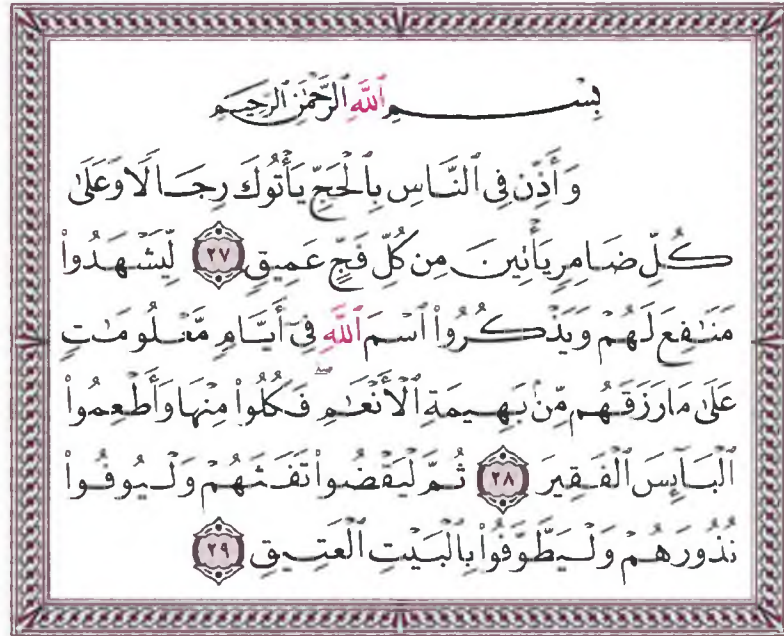 بِسْمِ ٱللَّهِ ٱلرَّحْمَٰنِ ٱلرَّحِيمِ
وَأَذِّن فِي ٱلنَّاسِ بِٱلْحَجِّ يَأْتُوكَ رِجَالًا وَعَلَىٰ
كُلِّ ضَامِرٍ يَأْتِينَ مِن كُلِّ فَجٍّ عَمِيقٍ ٢٧ لِّيَشْهَدُوا۟
مَنَٰفِعَ لَهُمْ وَيَذْكُرُوا۟ ٱسْمَ ٱللَّهِ فِىٓ أَيَّامٍ مَّعْلُومَٰتٍ
عَلَىٰ مَا رَزَقَهُم مِّنۢ بَهِيمَةِ ٱلْأَنْعَٰمِ ۖ فَكُلُوا۟ مِنْهَا وَأَطْعِمُوا۟
ٱلْبَآئِسَ ٱلْفَقِيرَ ٢٨ ثُمَّ لْيَقْضُوا۟ تَفَثَهُمْ وَلْيُوفُوا۟
نُذُورَهُمْ وَلْيَطَّوَّفُوا۟ بِٱلْبَيْتِ ٱلْعَتِيقِ ٢٩